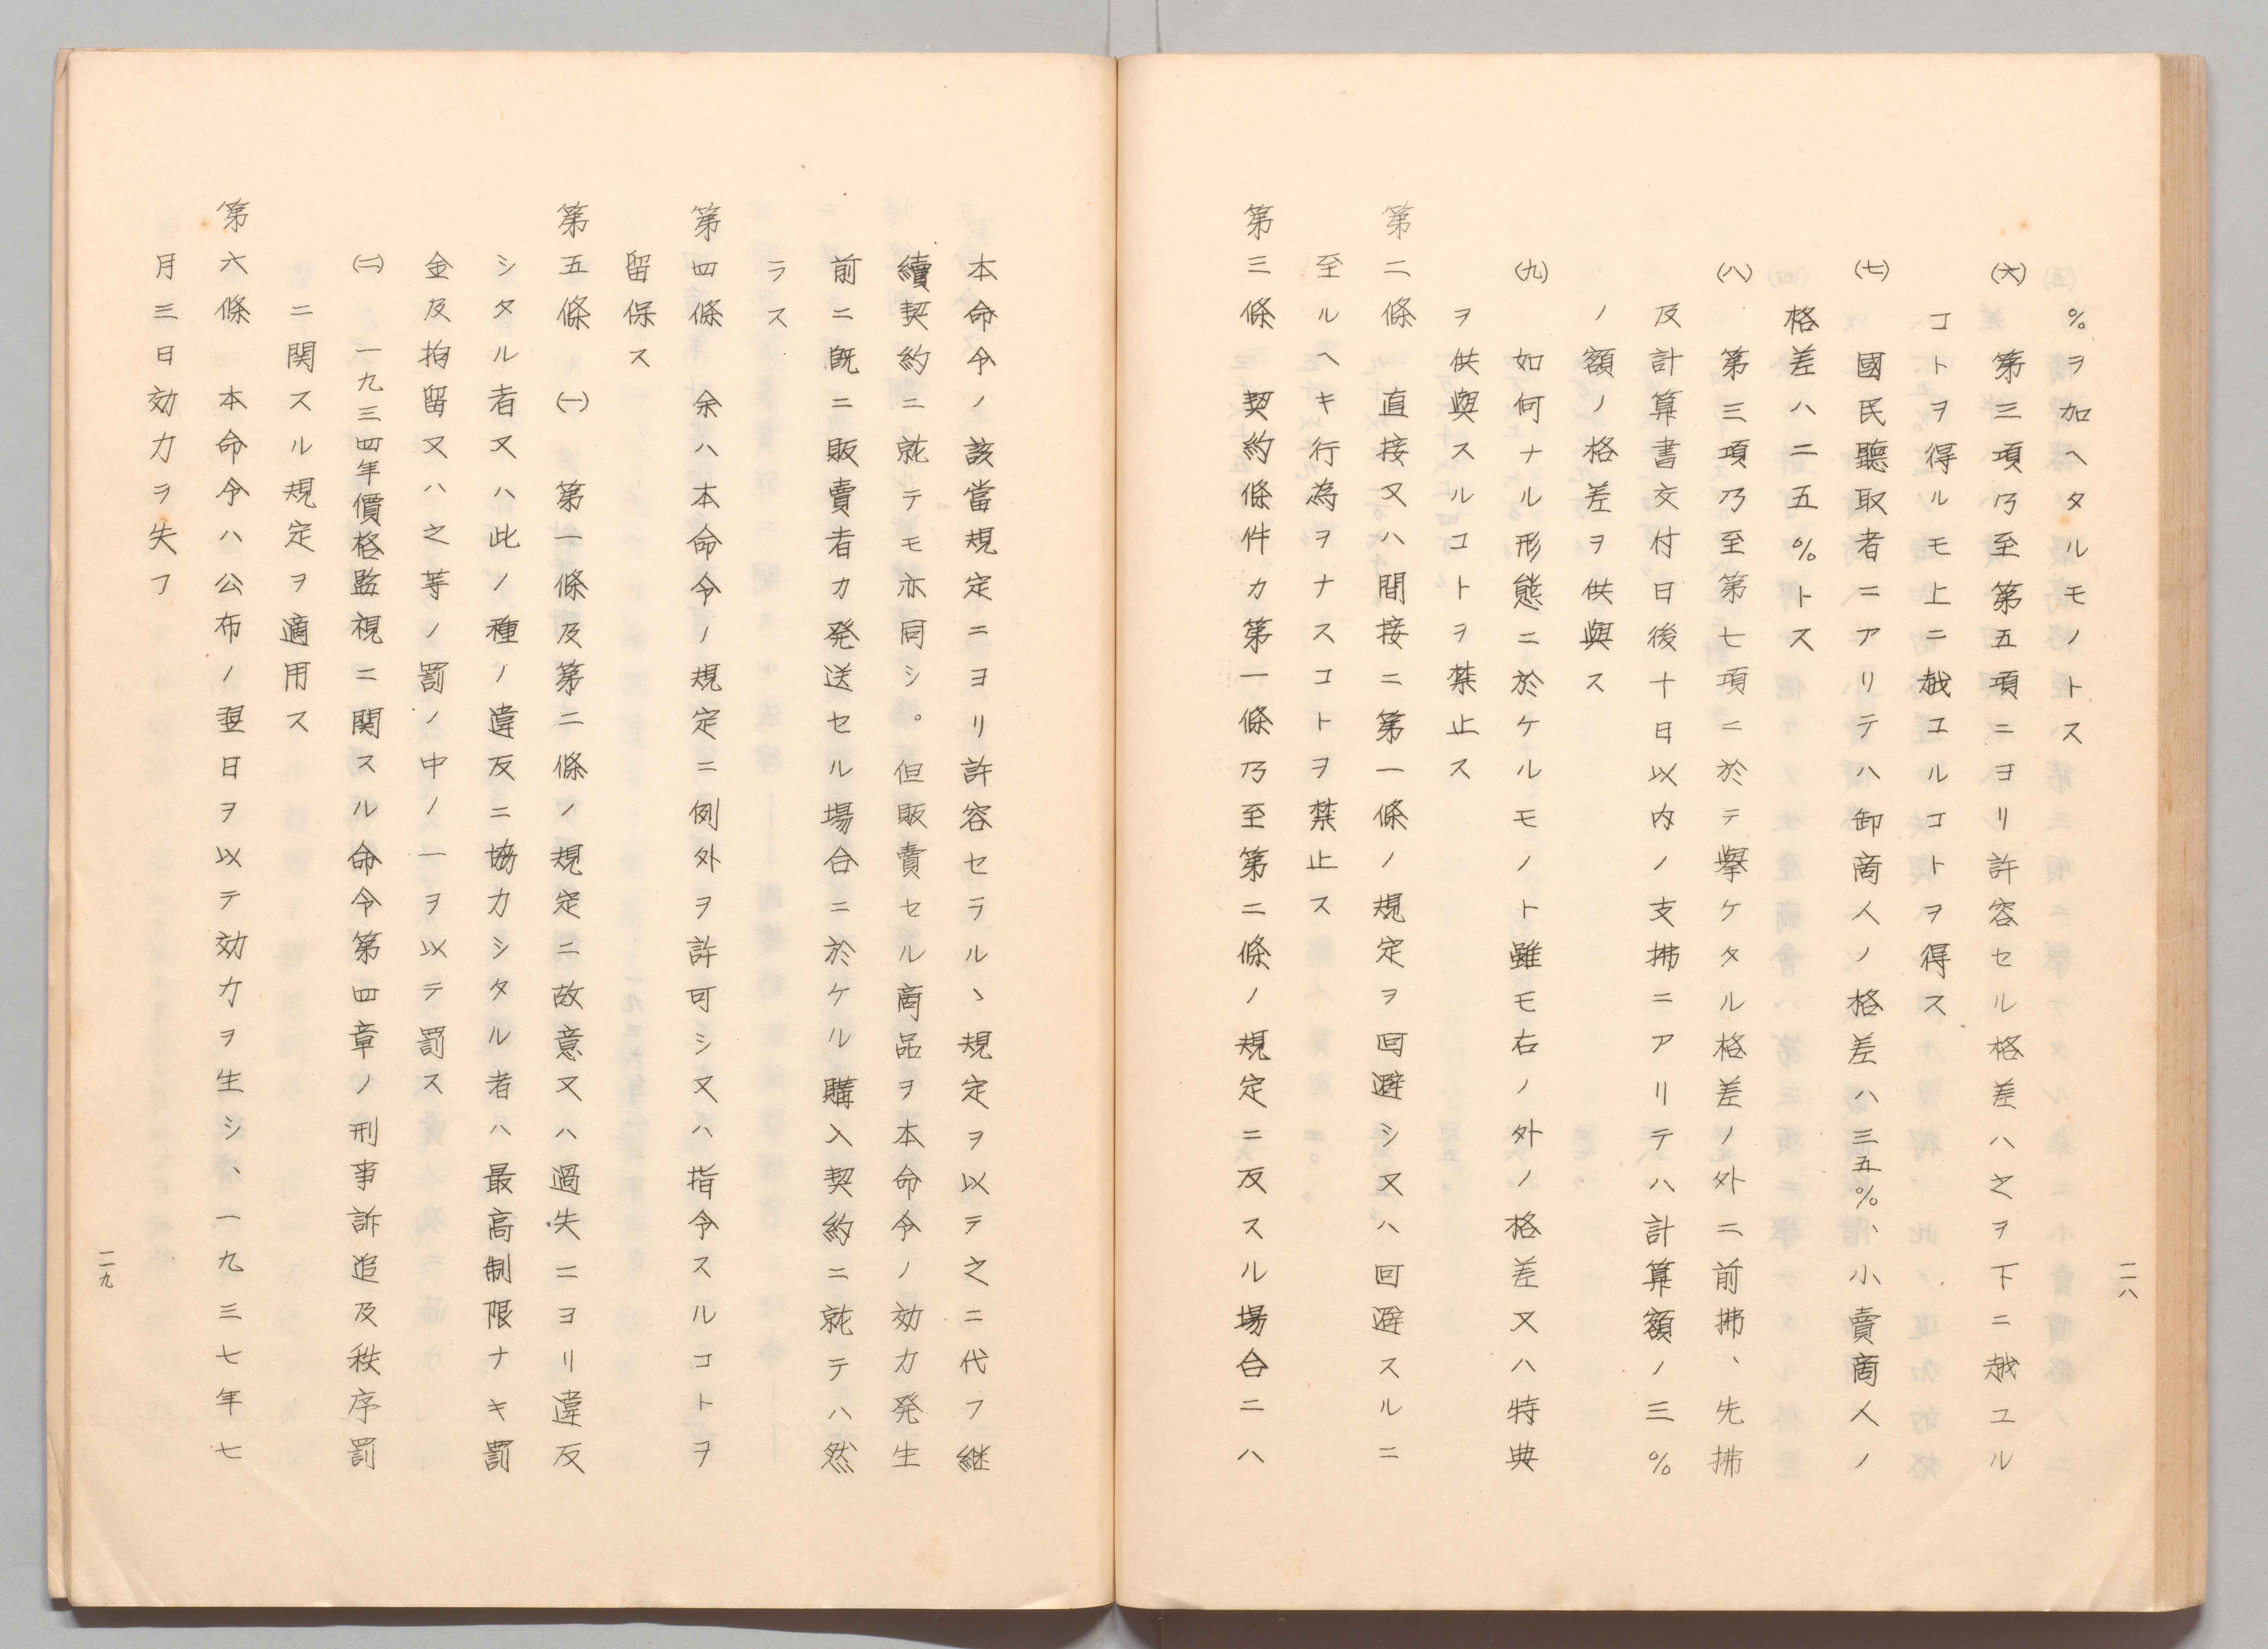 二八
%ヲ加ヘタルモノトス
㈥　第三項乃至第五項ニヨリ許容セル格差ハ之ヲ下ニ越ユル
コトヲ得ルモ上ニ越ユルコトヲ得ス
㈦　國民聽取者ニアリテハ卸商人ノ格差ハ三五%、小賣商人ノ
格差ハ二五%トス
㈧　第三項乃至第七項ニ於テ擧ケタル格差ノ外ニ前拂、先拂
及計算書交付日後十日以内ノ支拂ニアリテハ計算額ノ三%
ノ額ノ格差ヲ供與ス
㈨　如何ナル形態ニ於ケルモノト雖モ右ノ外ノ格差又ハ特典
ヲ供與スルコトヲ禁止ス
第二條　直接又ハ間接ニ第一條ノ規定ヲ回避シ又ハ回避スルニ
至ルヘキ行為ヲナスコトヲ禁止ス
第三條　契約條件カ第一條乃至第二條ノ規定ニ反スル場合ニハ
本命令ノ該當規定ニヨリ許容セラルヽ規定ヲ以テ之ニ代フ継
續契約ニ就テモ亦同シ。但販賣セル商品ヲ本命令ノ効力発生
前ニ既ニ販賣者カ発送セル場合ニ於ケル購入契約ニ就テハ然
ラス
第四條　余ハ本命令ノ規定ニ例外ヲ許可シ又ハ指令スルコトヲ
留保ス
第五條　㈠　第一條及第二條ノ規定ニ故意又ハ過失ニヨリ違反
シタル者又ハ此ノ種ノ違反ニ協力シタル者ハ最高制限ナキ罰
金及拘留又ハ之等ノ罰ノ中ノ一ヲ以テ罰ス
㈡　一九三四年價格監視ニ関スル命令第四章ノ刑事訴追及秩序罰
ニ関スル規定ヲ適用ス
第六條　本命令ハ公布ノ翌日ヲ以テ効力ヲ生シ、一九三七年七
月三日効力ヲ失フ
二九